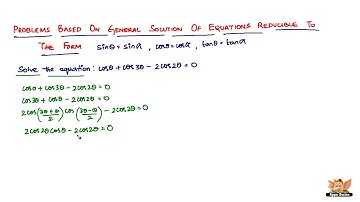 Problems Based On General Solution Of Equations Reducible To
The Form sinθ = sinα , cosθ = cosα , tanθ = tanα
Solve the equation : cosθ + cos3θ - 2cos2θ = 0
cosθ + cos3θ - 2cos2θ = 0
cos3θ + cosθ - 2cos2θ = 0
2cos(3θ+θ/2) cos(3θ-θ/2) - 2cos2θ = 0
2cos2θ cosθ - 2cos2θ = 0